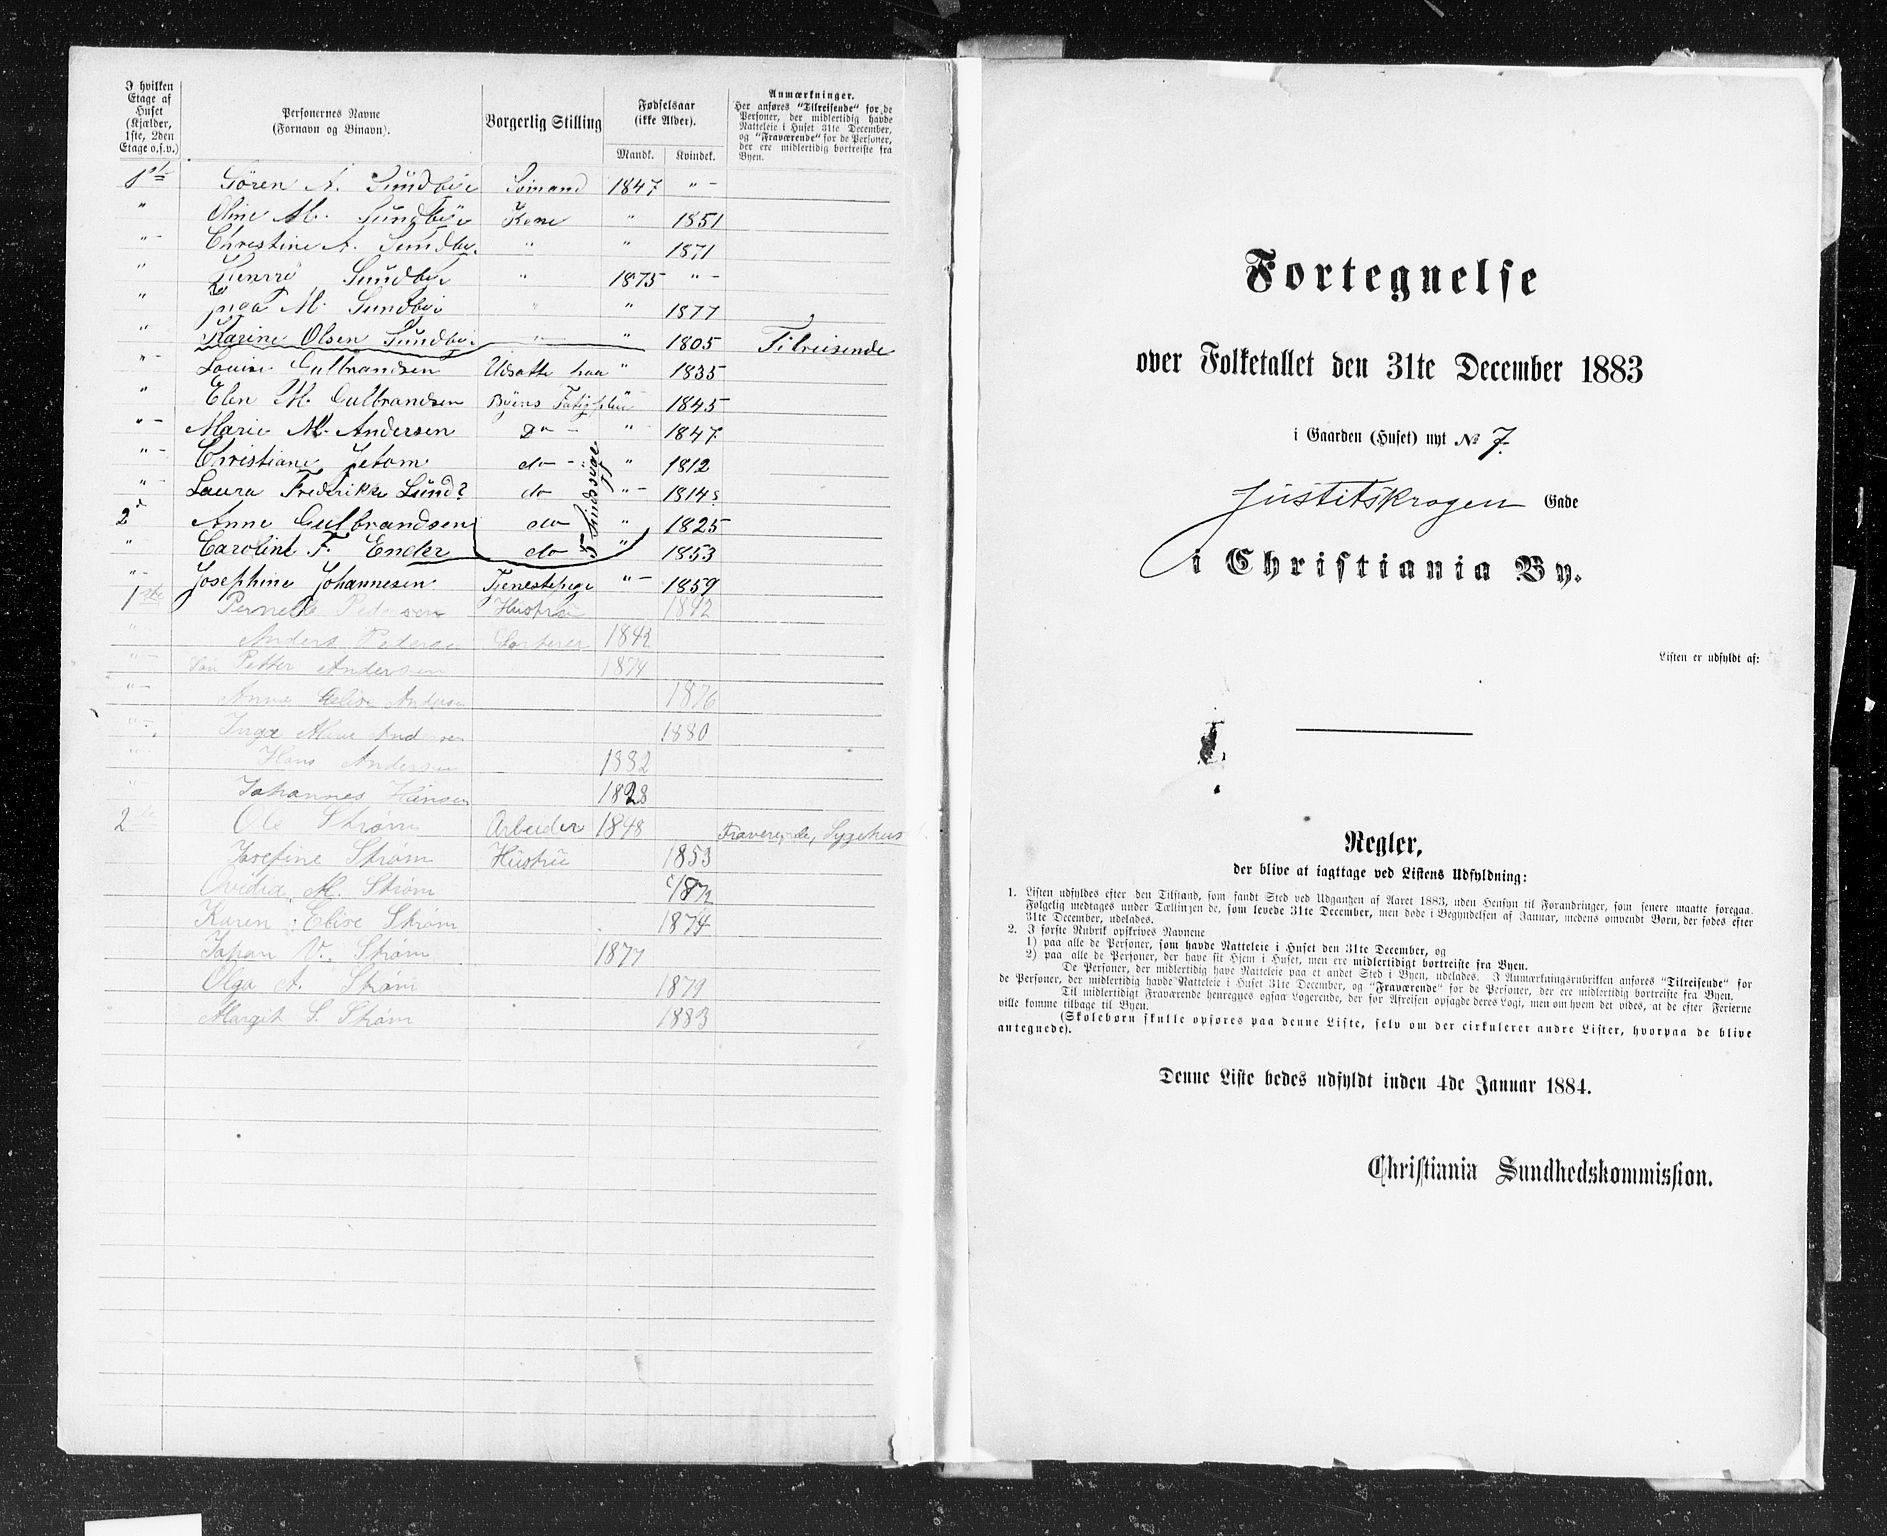 I hvilken Etage af Huset (Kjælder, 1ste, 2den Etage o.s.v.)
Personernes Navne (Fornavn og Binavn).
Borgerlig Stilling
Fødselsaar (ikke Alder).
Mandk. Kvindek.
Anmærkninger.
Her anføres "Tilreisende" for de Personer, der midlertidig havde Natteleie i Huset 31te December, og "Fraværende" for de Personer, der ere midlertidig bortreiste fra Byen.
1ste Søren A. Sundbye Sømand 1847 " -
" Oline M. Sundbye Kone " 1851
" - Christine A. Sundby. " " 1871
" Sundbye " 1875 " -
" M. Sundbye " " 1877
" Karine Olsen Sundbye " " 1805 Tilreisende
" - Louise Gulbrandsen Udsatte " 1835
" Elen M. Gulbrandsen Byens " 1845
" - Marie M. Andersen Do - " - 1847
" - Christiane do - " 1812
" - Laura Frederikke Lund? do " - 1814
5 Sindssvage
2d Anne Gulbrandsen do " 1825
" Caroline F. Ender do " 1853
" - Josephine Johannesen Tjenestepige " - 1859
1ste Pernelle Pedersen Hustru 1842
" Anders Pedersen 1842
" - Petter Andersen 1874
" - Anna Andersen 1876
" - Inga Andersen 1880
" Hans Andersen 1882
" Johannes Hansen 1828
2de Ole Strøm Arbeider 1848 Fraverende, Sygehus
Josefine Strøm Hustru 1853
Ovidia M. Strøm 1872
Karen Elise Strøm 1874
Johan V. Strøm 1877
Olga A. Strøm 1879
Margit S. Strøm 1883
Fortegnelse
over Folketallet den 31te December 1883
i Gaarden (Huset) nyt № 7.
Justitskrogen Gade
i Christiania By.
Listen er udfyldt af:
Regler,
der blive at iagttage ved Listens Udfyldning:
1. Listen udfyldes efter den Tilstand, som fandt Sted ved Udgangen af Aaret 1883, uden Hensyn til Forandringer, som senere maatte foregaa.
Følgelig medtages under Tællingen de, som levede 31te December, men døde i Begyndelsen af Januar, medens omvendt Børn, der fødes efter
31te December, udelades.
2. I første Rubrik opskrives Navnene
1) paa alle de Personer, som havde Natteleie i Huset den 31te December, og
2) paa alle de Personer, der have sit Hjem i Huset, men ere midlertidigt bortreiste fra Byen.
De Personer, der midlertidig have Natteleie paa et andet Sted i Byen, udelades. I Anmærkningsrubrikken anføres "Tilreisende" for
de Personer, der midlertidig havde Natteleie i Huset 31te December, og "Fraværende" for de Personer, der ere midlertidig bortreiste fra Byen.
Til midlertidigt Fraværende henregnes ogsaa Logerende, der før Afreisen opsagde deres Logi, men om hvem det vides, at de efter Ferierne
ville komme tilbage til Byen.
(Skolebørn skulle opføres paa denne Liste, selv om der cirkulerer andre Lister, hvorpaa de blive
antegnede).
Denne Liste bedes udfyldt inden 4de Januar 1884.
Christiania Sundhedskommission.